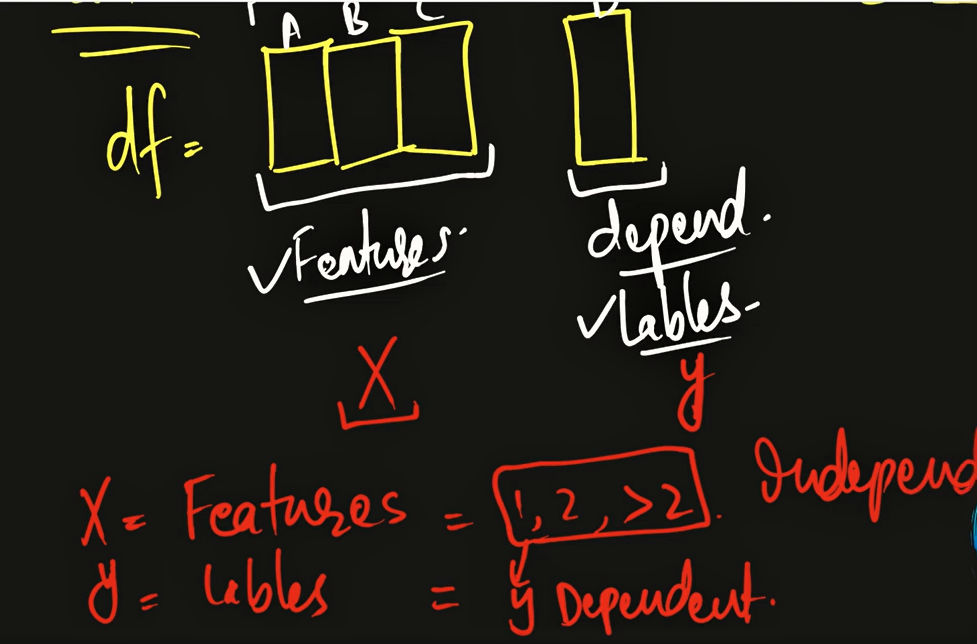 A B C D
df =
Features. depend.
lables-
X y
X = Features = 1, 2, >2. Independ
y = lables = y Dependent.